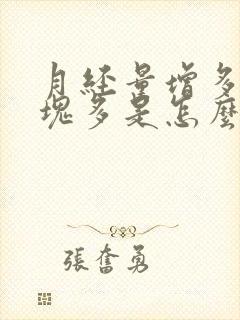 月經量增多血
塊多是怎麼
張奮勇